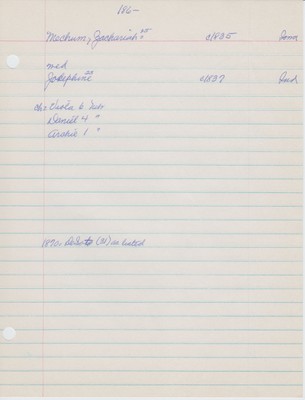 186-
Mechum, Zachariah 35 c1835 Iowa
med
Josephine 33 c1837 Ind
ch: Viola 6 Nebr
Daniell 4 "
Archie 1 "
1870: (N) is listed